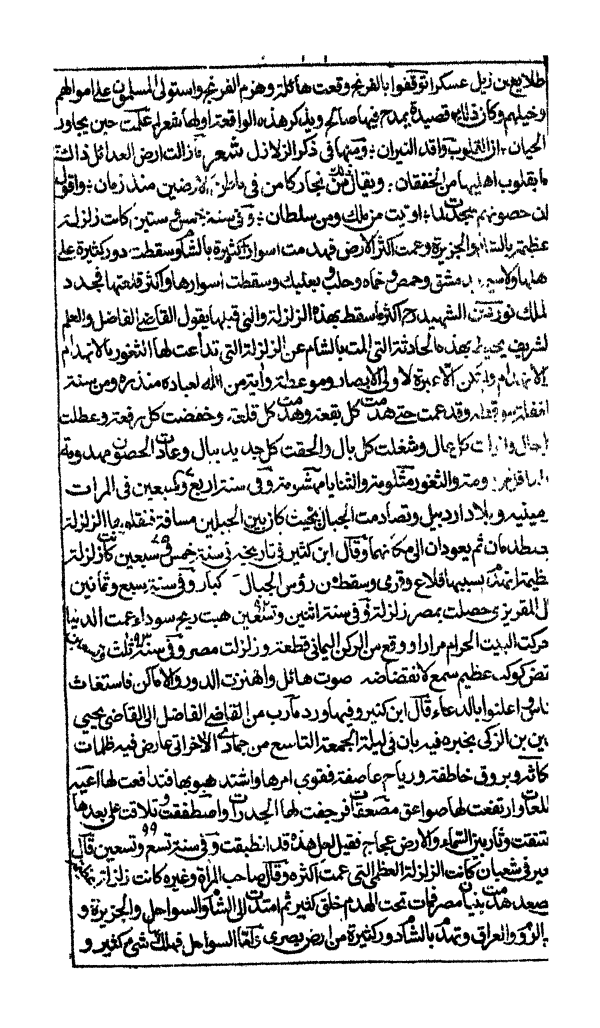 طلايع بن زيك عسكرا توقفوا بالفرنج وقعت هائلة وهزم الفرنج واستولى المسلمون على اموالهم
وخيلهم وكان قصيدة يمدح فيها صالح ويذكر هذه الواقعة اولها شعر علمت حين يجاور
الحيان ان القلوب واقد النيران ومنها في ذكر الزلازل شعر ما زالت ارض العدائل ذاك
ما بقلوب اهليها من الخفقان ويقال من نجار كامن في الارضين منذ زمان واقول
ان حصونهم سجدت لما اوتيت من ملك ومن سلطان وفي سنة خمس وستين كانت زلزلة
عظيمة بالشام والجزيرة وعمت اكثر الارض فهدمت اسوارا كثيرة بالشام وسقطت دور كثيرة على
بدمشق وحمص وحماه وحلب وبعلبك وسقطت اسوارها واكثر قلعتها فجدد
لملك نور الشهيد اكثر ما سقط بهذه الزلزلة والتي قبلها يقول القاضي الفاضل والعلم
لشريف يحيط بهذه الحادثة التي المت بالشام عن الزلزلة التي تداعت لها الثغور بالانهدام
الا عبرة لاولي الابصار وموعظة واية من الله لعباده منذرة ومن سنة
وقد عمت حتى هدمت كل بقعة وهدمت كل قلعة وخفضت كل رفعة وعطلت
كل حال وشغلت كل بال والحقت كل جديد ببال وعادت الحصون مهدومة
والثغور مثلومة والثنايا مهشومة وفي سنة اربع وسبعين في المرات
مينيه وبلاد اردبيل وتصادمت الجبال بحيث كان بين الجبلين مسافة الزلزلة
ثم يعودان الى مكانهما وقال ابن كثير في تاريخه في سنة خمس وسبعين كانت زلزلة
ظيمة انهدت بسببها قلاع وقرى وسقطت من رؤس الجبال كبار وفي سنة سبع وثمانين
ل المقريزي حصلت بمصر زلزلة وفي سنة اثنين وتسعين هبت ريح سوداء عمت الدنيا
حركت البيت الحرام مرارا ووقع من الركن اليماني قطعة وزلزلت مصر وفي سنة ثلث وتسعين
نقض كوكب عظيم سمع لانقضاضه صوت هائل واهتزت الدور والاماكن فاستغاث
ناس واعلنوا بالدعاء وقال ابن كثير وفيها ورد مآرب من القاضي الفاضل الى القاضي محيي
ين بن الزكي يخبره فيه بان في ليلة الجمعة التاسع من جمادى الاخر اتى عارض فيه ظلمات
كاثر وبروق خاطفة ورياح عاصفة فقوي امرها واشتد هبوبها فتدافعت لها اعنة
وارتفعت لها صواعق مصعقات فرجفت لها الجدران واصطفقت وتلاقت على بعدها
تنقت وثار بين السماء والارض عجاج فقيل لعل هذه قد انطبقت وفي سنة تسع وتسعين قال
في شعبان كانت الزلزلة العظمى التي عمت اكثره وقال صاحب المرآة وغيره كانت زلزلة
صعد هدمت بنيان مصر فمات تحت الهدم خلق كثير ثم امتدت الى الشام والسواحل والجزيرة و
والعراق وتهدم بالشام دور كثيرة من ارض بصرى السواحل فهلك بها شيء كثير و